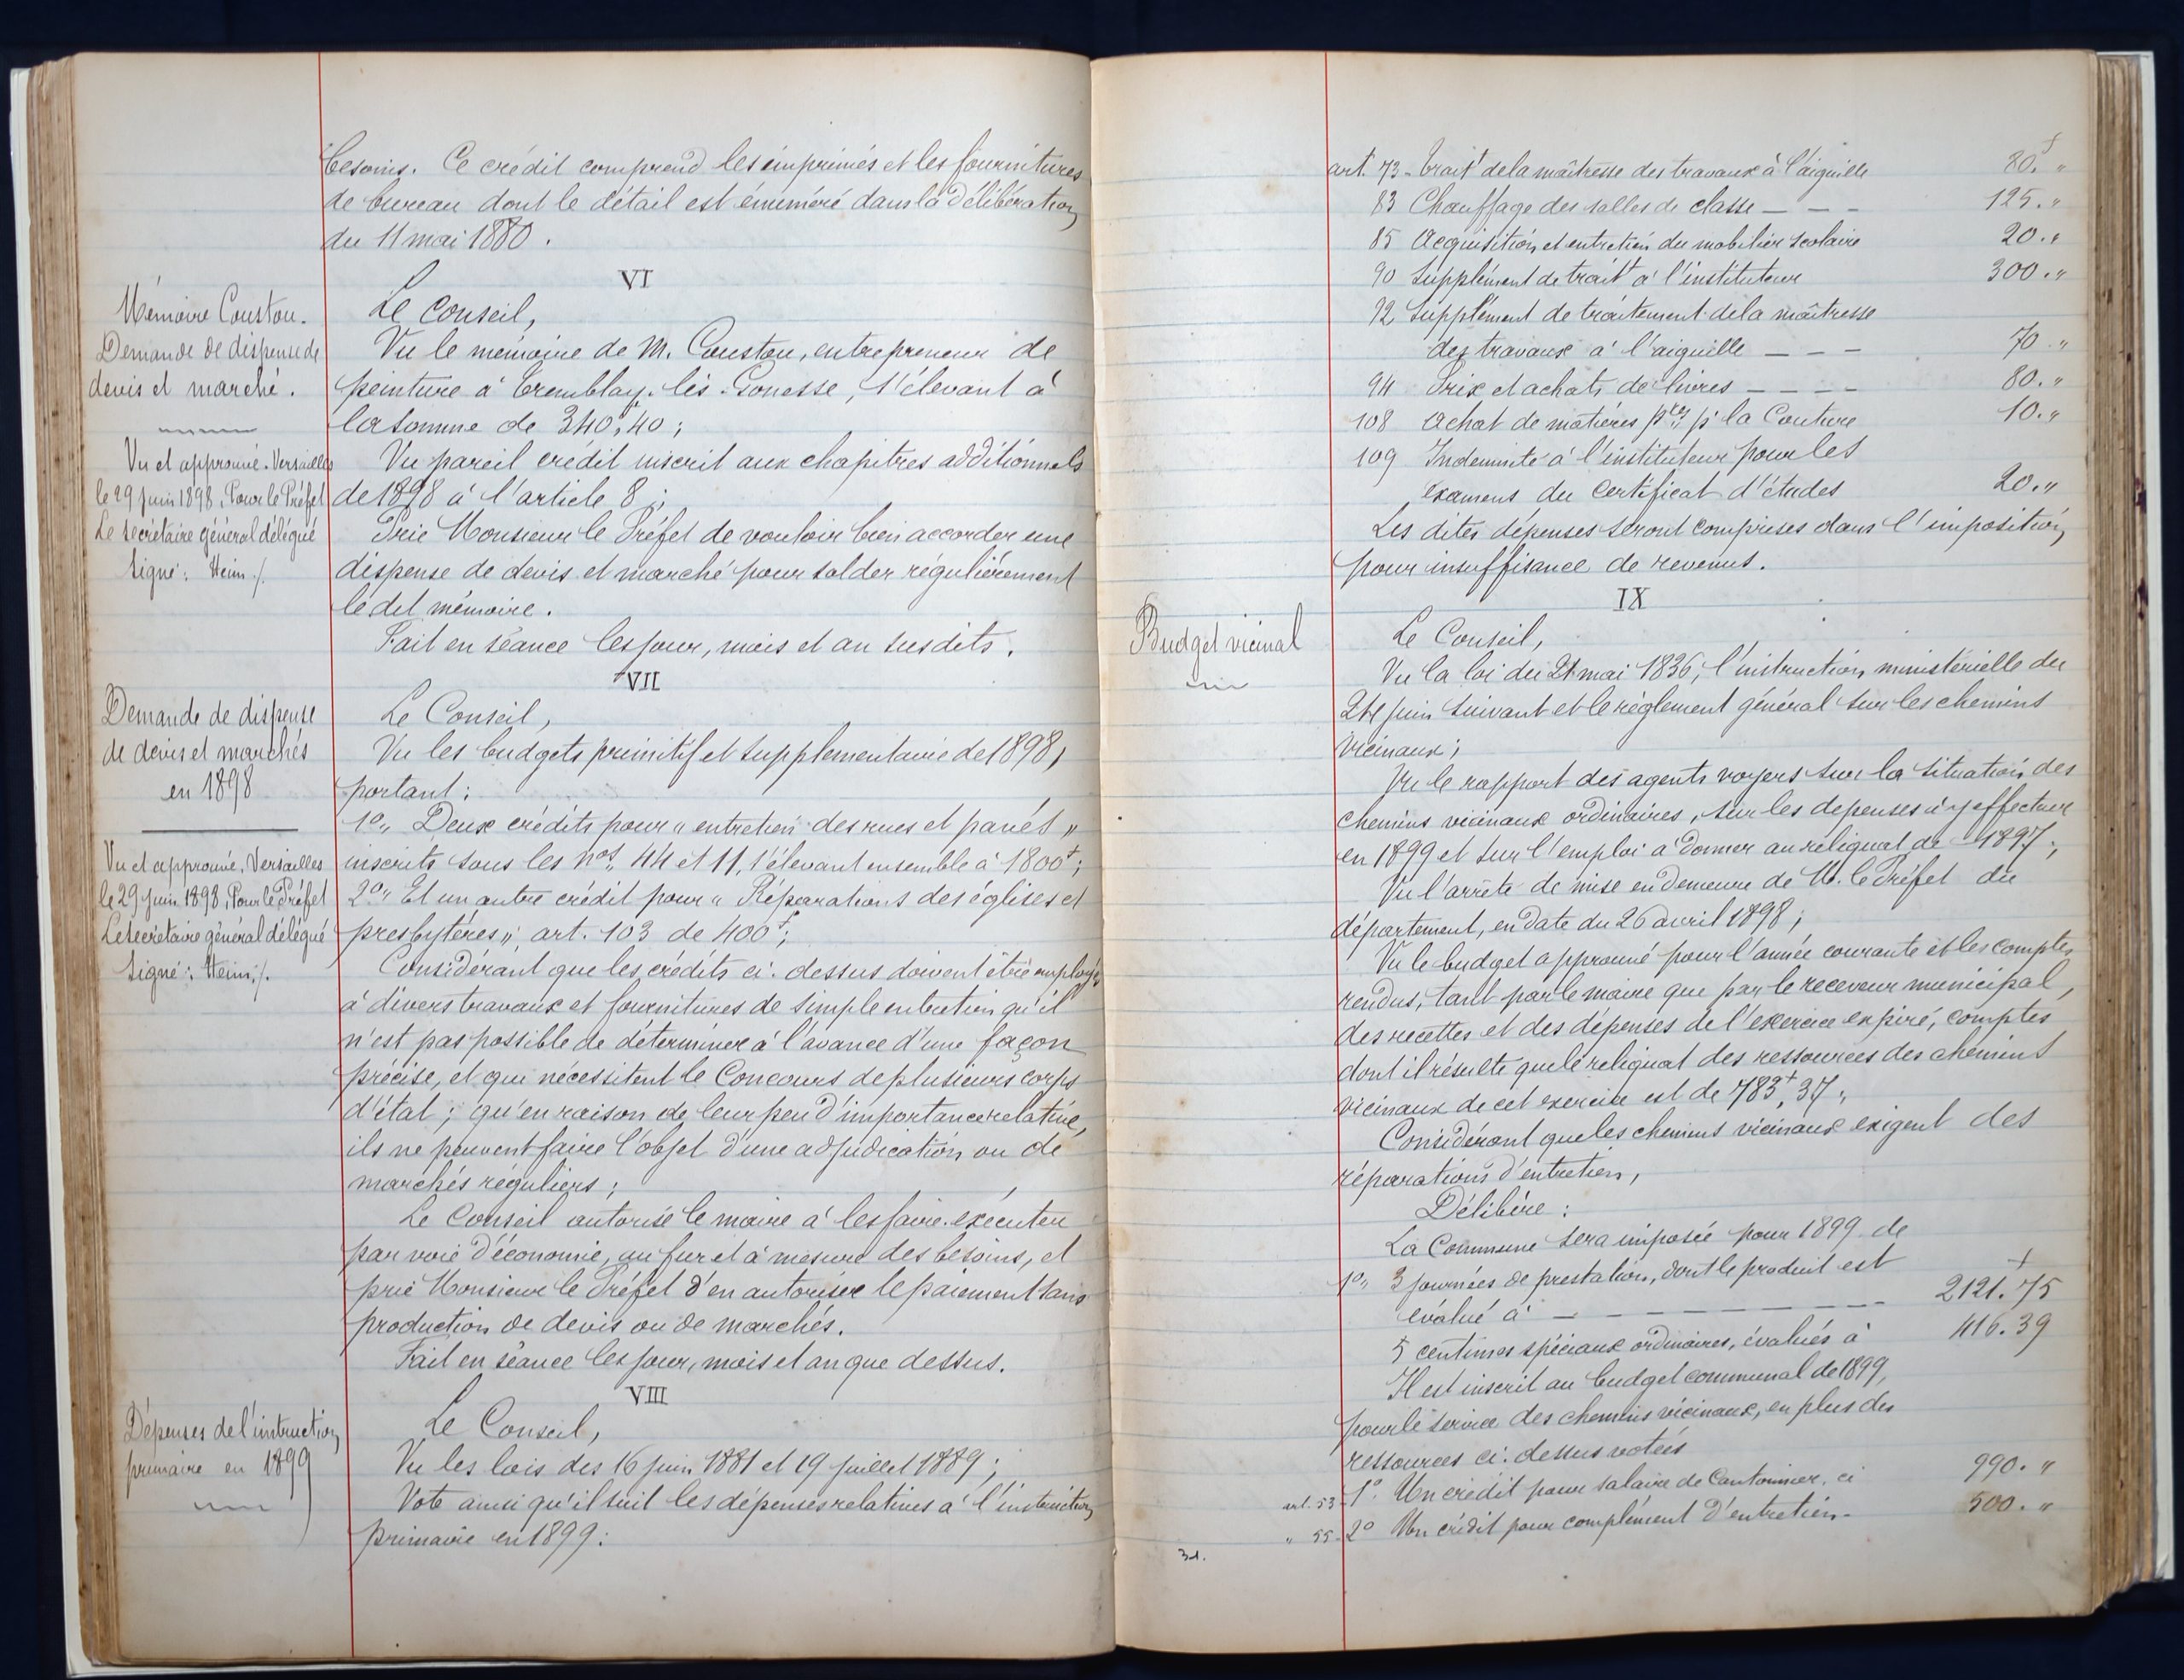 besoins. Ce crédit comprend les imprimés et les fournitures
de bureau dont le détail est énuméré dans la délibération
du 11 mai 1880.
VI
Mémoire Coustou.
Demande de dispense de
devis et marché.
Vu et approuvé. Versailles
le 29 juin 1898, Pour le Préfet
Le secrétaire général délégué
Signé : Heim ./.
Le Conseil,
Vu le mémoire de M. Coustou, entrepreneur de
peinture à Tremblay-lès-Gonesse, s'élevant à
la somme de 340f,40 ;
Vu pareil crédit inscrit aux chapitres additionnels
de 1898 à l'article 8 ;
Prie Monsieur le Préfet de vouloir bien accorder une
dispense de devis et marché pour solder régulièrement
le dit mémoire.
Fait en séance les jour, mois et an susdits.
VII
Demande de dispense
de devis et marchés
en 1898
Vu et approuvé, Versailles
le 29 juin 1898, Pour le Préfet
Le secrétaire général délégué
Signé : Heim ./.
Le Conseil,
Vu les budgets primitif et supplémentaire de 1898,
portant :
1°,, Deux crédits pour " entretien des rues et pavés "
inscrits sous les nos. 44 et 11, s'élevant ensemble à 1800f ;
2°,, Et un autre crédit pour " Réparations des églises et
presbytères ", art. 103 de 400f ;
Considérant que les crédits ci-dessus doivent être employés
à divers travaux et fournitures de simple entretien qu'il
n'est pas possible de déterminer à l'avance d'une façon
précise, et qui nécessitent le Concours de plusieurs corps
d'état ; qu'en raison de leur peu d'importance relative,
ils ne peuvent faire l'objet d'une adjudication ou de
marchés réguliers ;
Le Conseil autorise le maire à les faire exécuter
par voie d'économie, au fur et à mesure des besoins, et
prie Monsieur le Préfet d'en autoriser le paiement sans
production de devis ou de marchés.
Fait en séance les jour, mois et an que dessus.
VIII
Dépenses de l'instruction
primaire en 1899
Le Conseil,
Vu les lois des 16 juin 1881 et 19 juillet 1889 ;
Vote ainsi qu'il suit les dépenses relatives à l'instruction
primaire en 1899 :
art. 73 - trait^t de la maîtresse des travaux à l'aiguille 80.f "
83 Chauffage des salles de classe - - - 125. "
85 Acquisition et entretien du mobilier scolaire 20. "
90 Supplément de trait^t à l'instituteur 300. "
92 Supplément de traitement de la maîtresse
des travaux à l'aiguille - - - 70 "
94 Prix et achats de livres - - - - 80. "
108 Achat de matières p^res p^r la Couture 10. "
109 Indemnité à l'instituteur pour les
examens du Certificat d'études 20. "
Les dites dépenses seront comprises dans l'imposition
pour insuffisance de revenus.
IX
Budget vicinal
Le Conseil,
Vu la loi du 21 mai 1836, l'instruction ministérielle du
24 juin suivant et le règlement général sur les chemins
vicinaux ;
Vu le rapport des agents voyers sur la situation des
chemins vicinaux ordinaires, sur les dépenses à y effectuer
en 1899 et sur l'emploi à donner au reliquat de 1897 ;
Vu l'arrêté de mise en demeure de M. le Préfet du
département, en date du 26 avril 1898 ;
Vu le budget approuvé pour l'année courante et les comptes
rendus, tant par le maire que par le receveur municipal,
des recettes et des dépenses de l'exercice expiré, comptes
dont il résulte que le reliquat des ressources des chemins
vicinaux de cet exercice est de 783f,37 ;
Considérant que les chemins vicinaux exigent des
réparations d'entretien,
Délibère :
La Commune sera imposée pour 1899 de
1°,, 3 journées de prestation, dont le produit est
évalué à - - - - - - - - - 2121.f75
5 centimes spéciaux ordinaires, évalués à 416.39
Il est inscrit au budget communal de 1899,
pour le service des chemins vicinaux, en plus des
ressources ci-dessus votées
art. 53 - 1° Un crédit pour salaire de Cantonnier, ci 990. "
" 55 - 2° Un crédit pour complément d'entretien - 500. "
31.